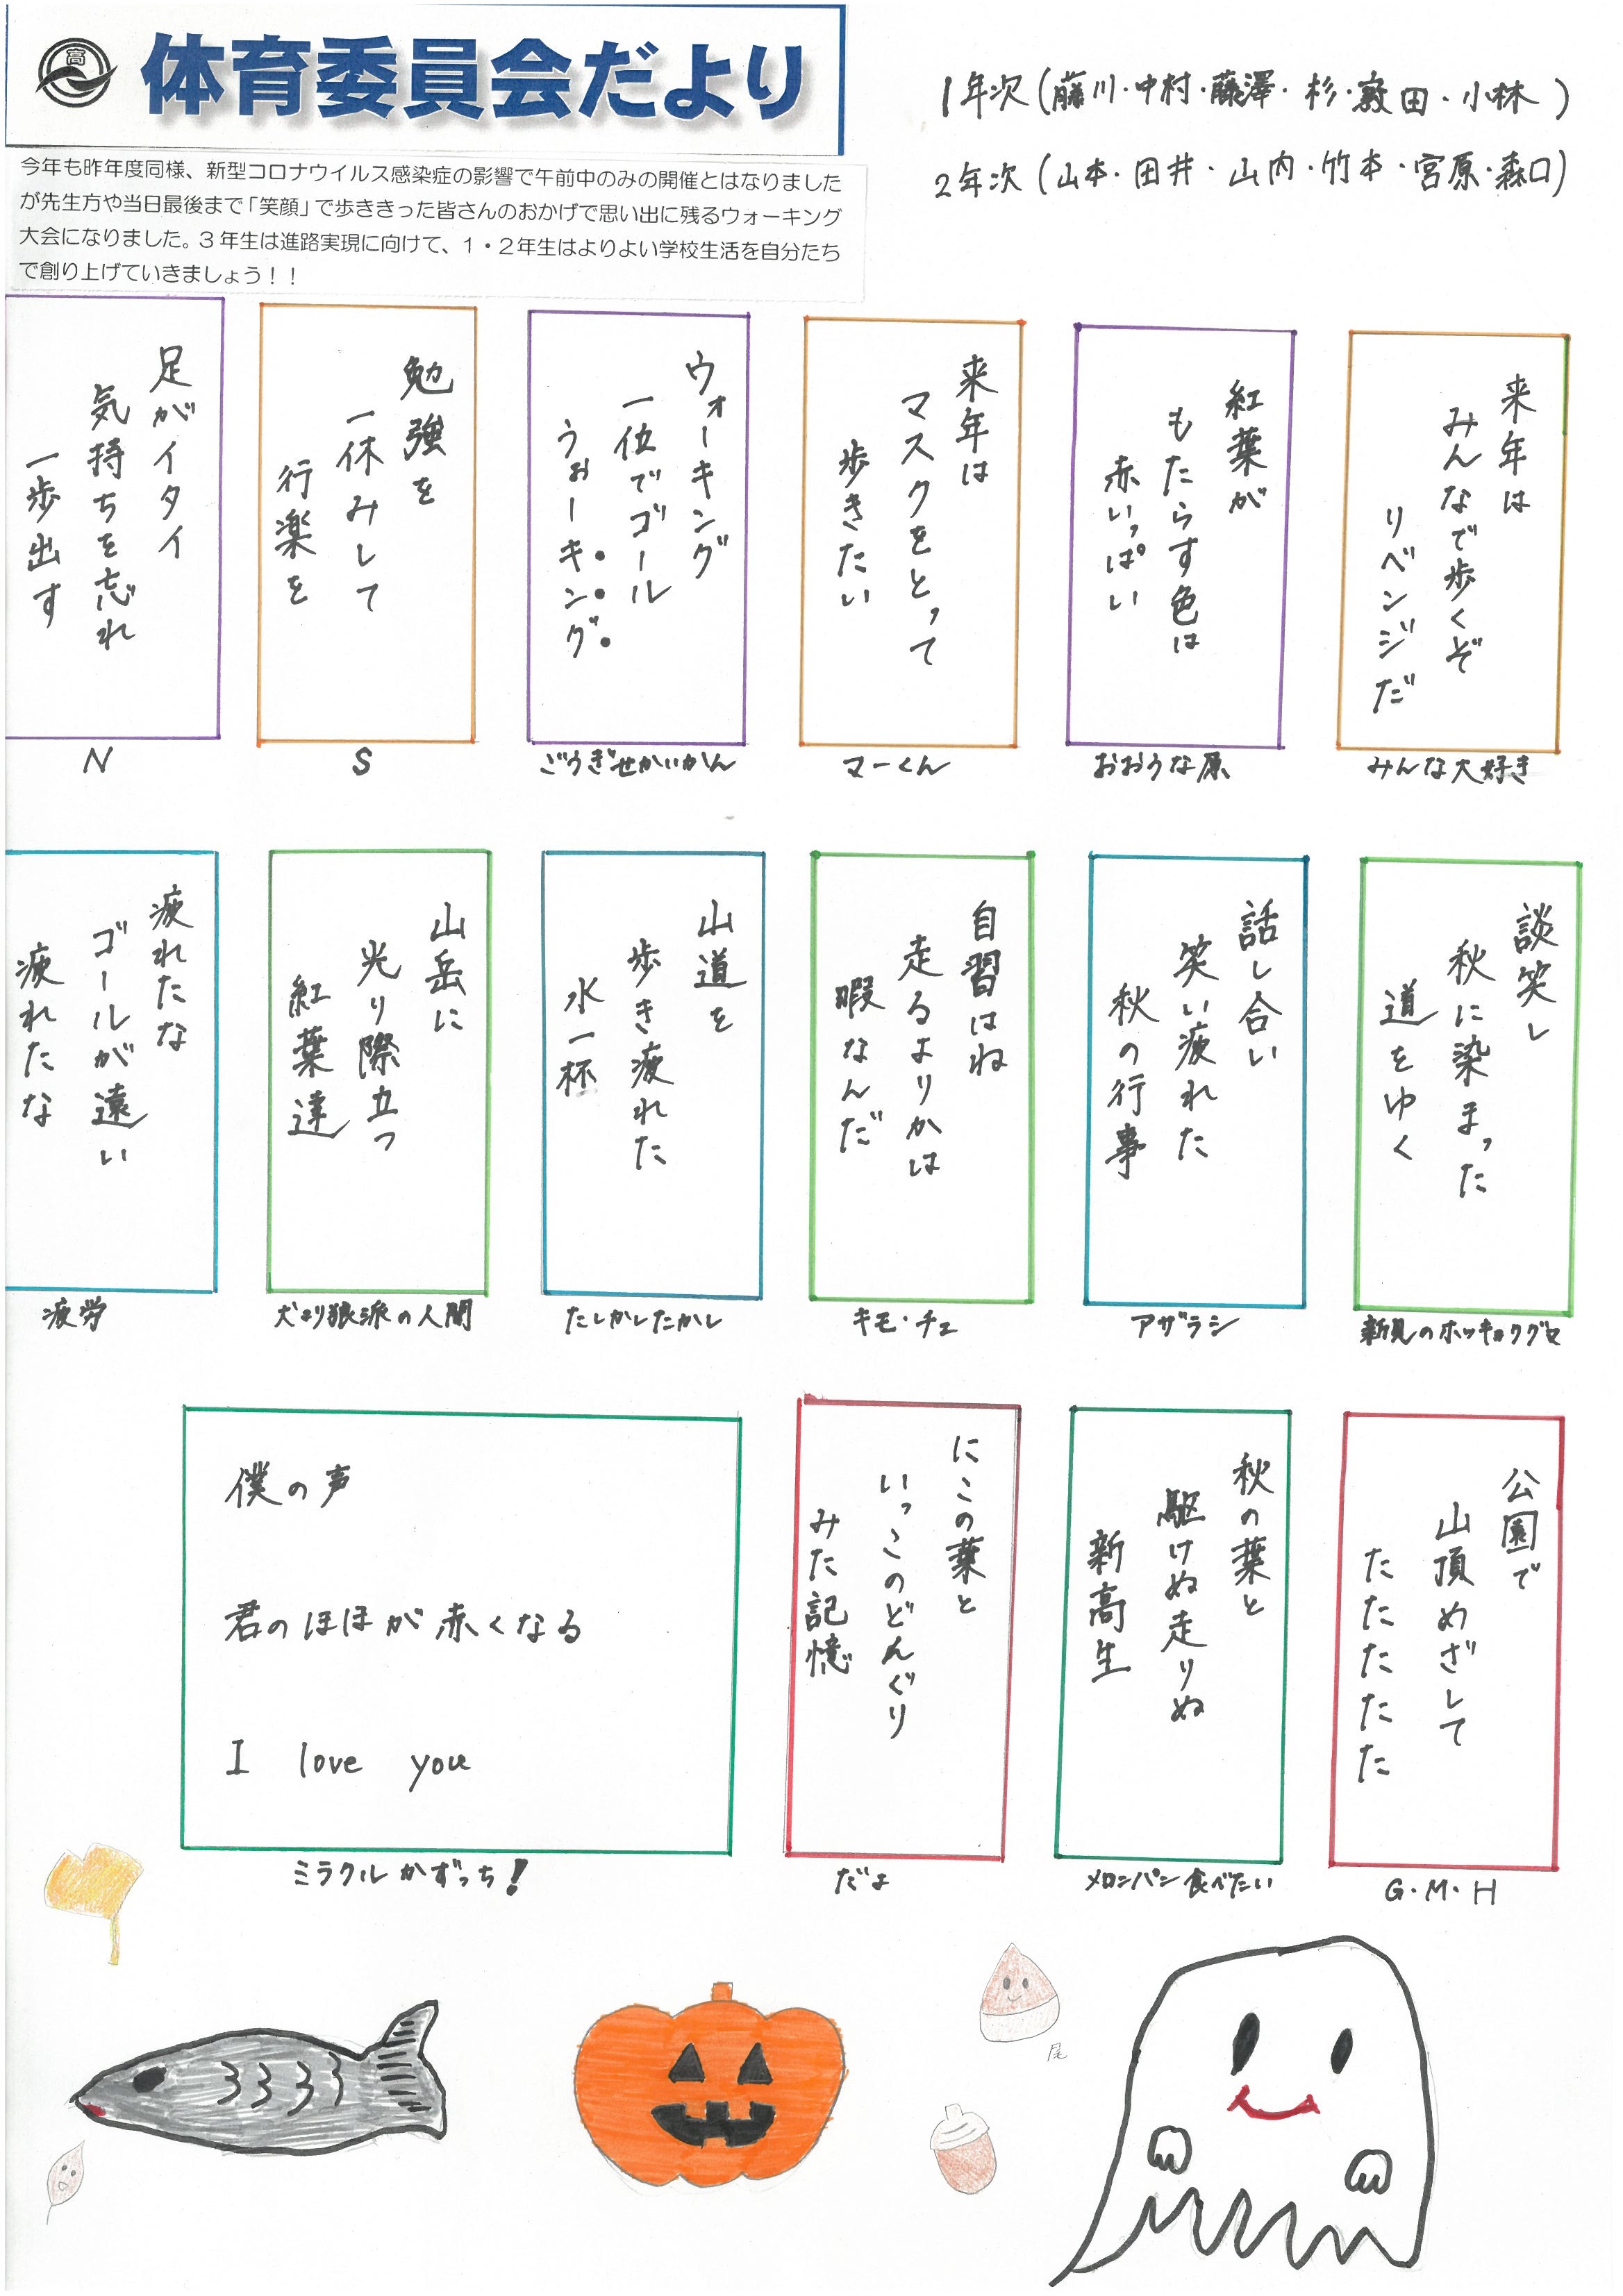 高
体育委員会だより
1年次(藤川・中村・藤澤・杉・敷田・小林)
2年次(山本・田井・山内・竹本・宮原・森口)
今年も昨年度同様、新型コロナウイルス感染症の影響で午前中のみの開催とはなりました
が先生方や当日最後まで「笑顔」で歩ききった皆さんのおかげで思い出に残るウォーキング
大会になりました。３年生は進路実現に向けて、１・２年生はよりよい学校生活を自分たち
で創り上げていきましょう！！
来年は
みんなで歩くぞ
リベンジだ
みんな大好き
紅葉が
もたらす色は
赤いっぱい
おおうな原
来年は
マスクをとって
歩きたい
マーくん
ウォーキング
一位でゴール
うぉーキング
ごうぎせかいかん
勉強を
一休みして
行楽を
S
足がイタイ
気持ちを忘れ
一歩出す
N
談笑し
秋に染まった
道をゆく
新見のホッキョクグセ
話し合い
笑い疲れた
秋の行事
アザラシ
自習はね
走るよりかは
暇なんだ
キモ・チェ
山道を
歩き疲れた
水一杯
たしかしたかし
山岳に
光り際立つ
紅葉達
犬より狼派の人間
疲れたな
ゴールが遠い
疲れたな
疲労
公園で
山頂めざして
たたたたた
G・M・H
秋の葉と
駆けぬ走りぬ
新高生
メロンパン食べたい
にこの葉と
いっこのどんぐり
みた記憶
だよ
僕の声
君のほほが赤くなる
I love you
ミラクルかずっち!
尾